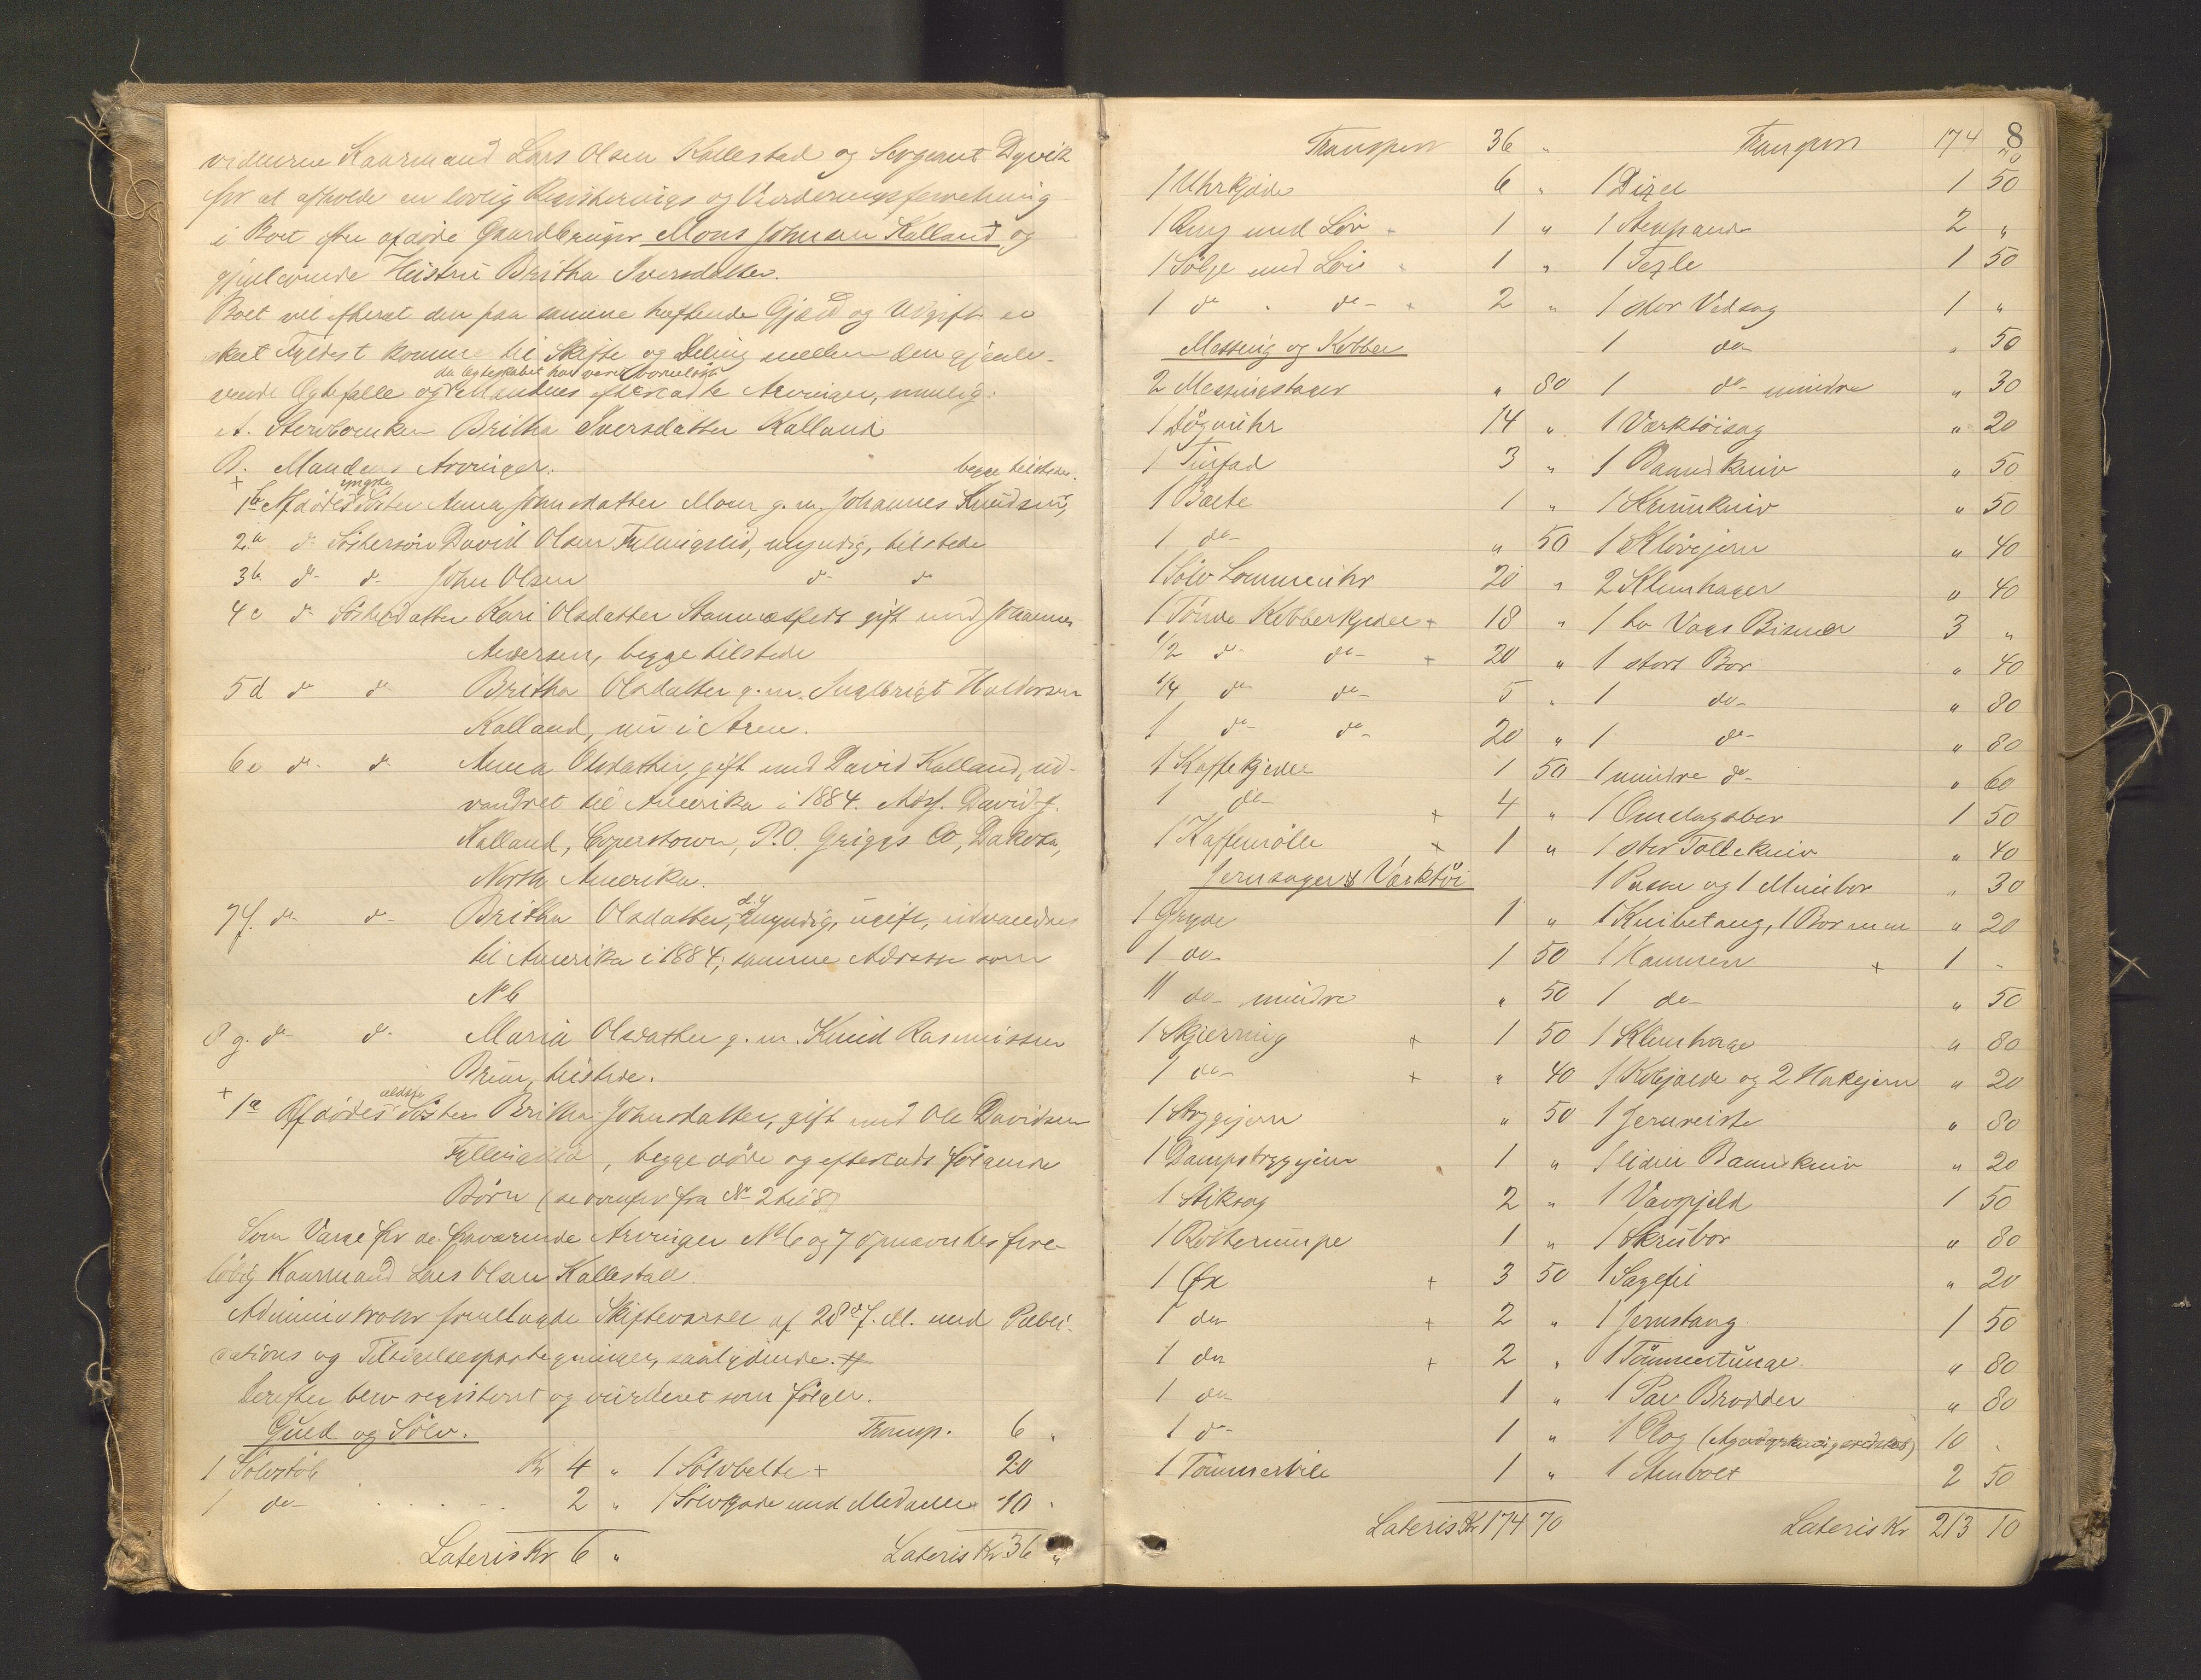 vidnerne Kaarmand Lars Olsen Kallestad og Sergeant Dyvik
for at afholde en lovlig Registerings og Vurderingsforretning
i Boet efter afdøde Gaardbruger Mons Johnsen Kalland og
gjenlevende Hustru Britha Iversdatter.
Boet vil efterat den paa samme heftende Gjæld og Udgift er
skeet Fyldest komme til Skifte og Deling mellem den gjenle-
da Ægteskabet har været barnløst
vende Ægtefælle og Mandens efterladte Arvinger, nemlig:
A. Stervboenken Britha Iversdatter Kalland
B. Mandens Arvinger. begge tilstede.
+ yngste
1b Afdødes Søster Anna Johnsdatter Moen g. m. Johannes Knudsen,
2 a do Søstersøn David Olsen Fyllingslid, myndig, tilstede
3 b. do do John Olsen do do
4 c do Søsterdatter Kari Olsdatter gift med Johannes
Andersen, begge tilstede
5 d do do Britha Olsdatter g. m. Engelbrigt Haldorsen
Kalland, nu i
6 e do do Anna Olsdatter, gift med David Kalland, ud-
vandret til Amerika i 1884. Adrs. David J.
Kalland, Coperstown, P.O. Griggs Co, Dakota,
North Amerika.
7 f. do do Britha Olsdatter, myndig, ugift, udvandret
til Amerika i 1884; samme Adresse som
No 6
8 g. do do Maria Olsdatter g. m. Knud Rasmussen
Bruun, tilstede.
+ ældste
1a Afdødes Søster Britha Johnsdatter, gift med Ole Davidsen
Fyllingslid, begge døde og efterladt følgende
Børn (se ovenfor fra No 2 til 8)
Som Værge for de fraværende Arvinger No 6 og 7 opnævntes fore-
løbig Kaarmand Lars Olsen Kallestad.
Administrator fremlagde Skiftevarsel af 28de f. M. med Publi-
cations og Tilsigelsespaategninger, saalydende.
Derefter blev registeret og vurderet som følger.
Guld og Sølv. Transp. 6 "
1 Sølvstob Kr 4 " 1 Sølvbelte + 20
1 do 2 " 1 Sølvkjæde med Medaille 10 "
Lateris Kr 6 " Lateris Kr 36 "
8
Transport 36 "
1 Uhrkjæde 6 "
1 Ring med Løv 1 "
1 Sølje med Løv 1 "
1 do " do + 2 "
Messing og Kobber
2 Messingstager " 80
1 Døgnuhr 14 "
1 Tinfad 3 "
1 Bøtte 1 "
1 do " 50
1 Sølv Lommeuhr 20 "
1 Tønde Kobberkjedel + 18 "
1/2 do do + 20 "
1/4 do do 5 "
1 do do 20 "
1 Kaffekjedel 1 50
1 do + 4 "
1 Kaffemølle + 1 "
Jernsager & Værktøi
1 Gryde 1 "
1 do 1 50
11 do mindre " 50
1 Skjerring + 1 50
1 do + " 40
1 Strygejern " 50
1 Dampstrygejern 1 "
1 Stiksag 2 "
1 Rotterumpe 1 "
1 Øx + 3 50
1 do + 2 "
1 do + 2 "
1 do 1 "
1 do 1 "
1 Tømmerbile 1 "
Lateris Kr 174 70
Transport 174 70
1 Dizel 1 50
1 2 "
1 Tezle 1 50
1 stor Vedsag 1 "
1 do " 50
1 do mindre " 30
1 Værktøisag " 20
1 Baandkniv " 50
1 Krumkniv " 50
1 Kløvejern " 40
2 Klemhager " 40
1 to Vogs Bismer 3 "
1 stort Bor " 40
1 do " 80
1 do " 80
1 mindre do " 60
1 Omslagsbor 1 50
1 stor Tollekniv " 40
1 Passer og 1 Minebor " 30
1 Knibetang, 1 " 20
1 Hammer + 1 "
1 do " 50
1 Klemhage " 80
1 Kobjælde og 2 Hakejern " 20
1 Jernrist " 80
1 liden Baandkniv " 20
1 Vævspjeld 1 50
1 Skrubor " 80
1 Sagefil " 20
1 Jernstang 1 50
1 Tømmertunge " 80
1 Par Brodder " 80
1 Plog 10 "
1 Ambolt 2 50
Lateris Kr 213 10